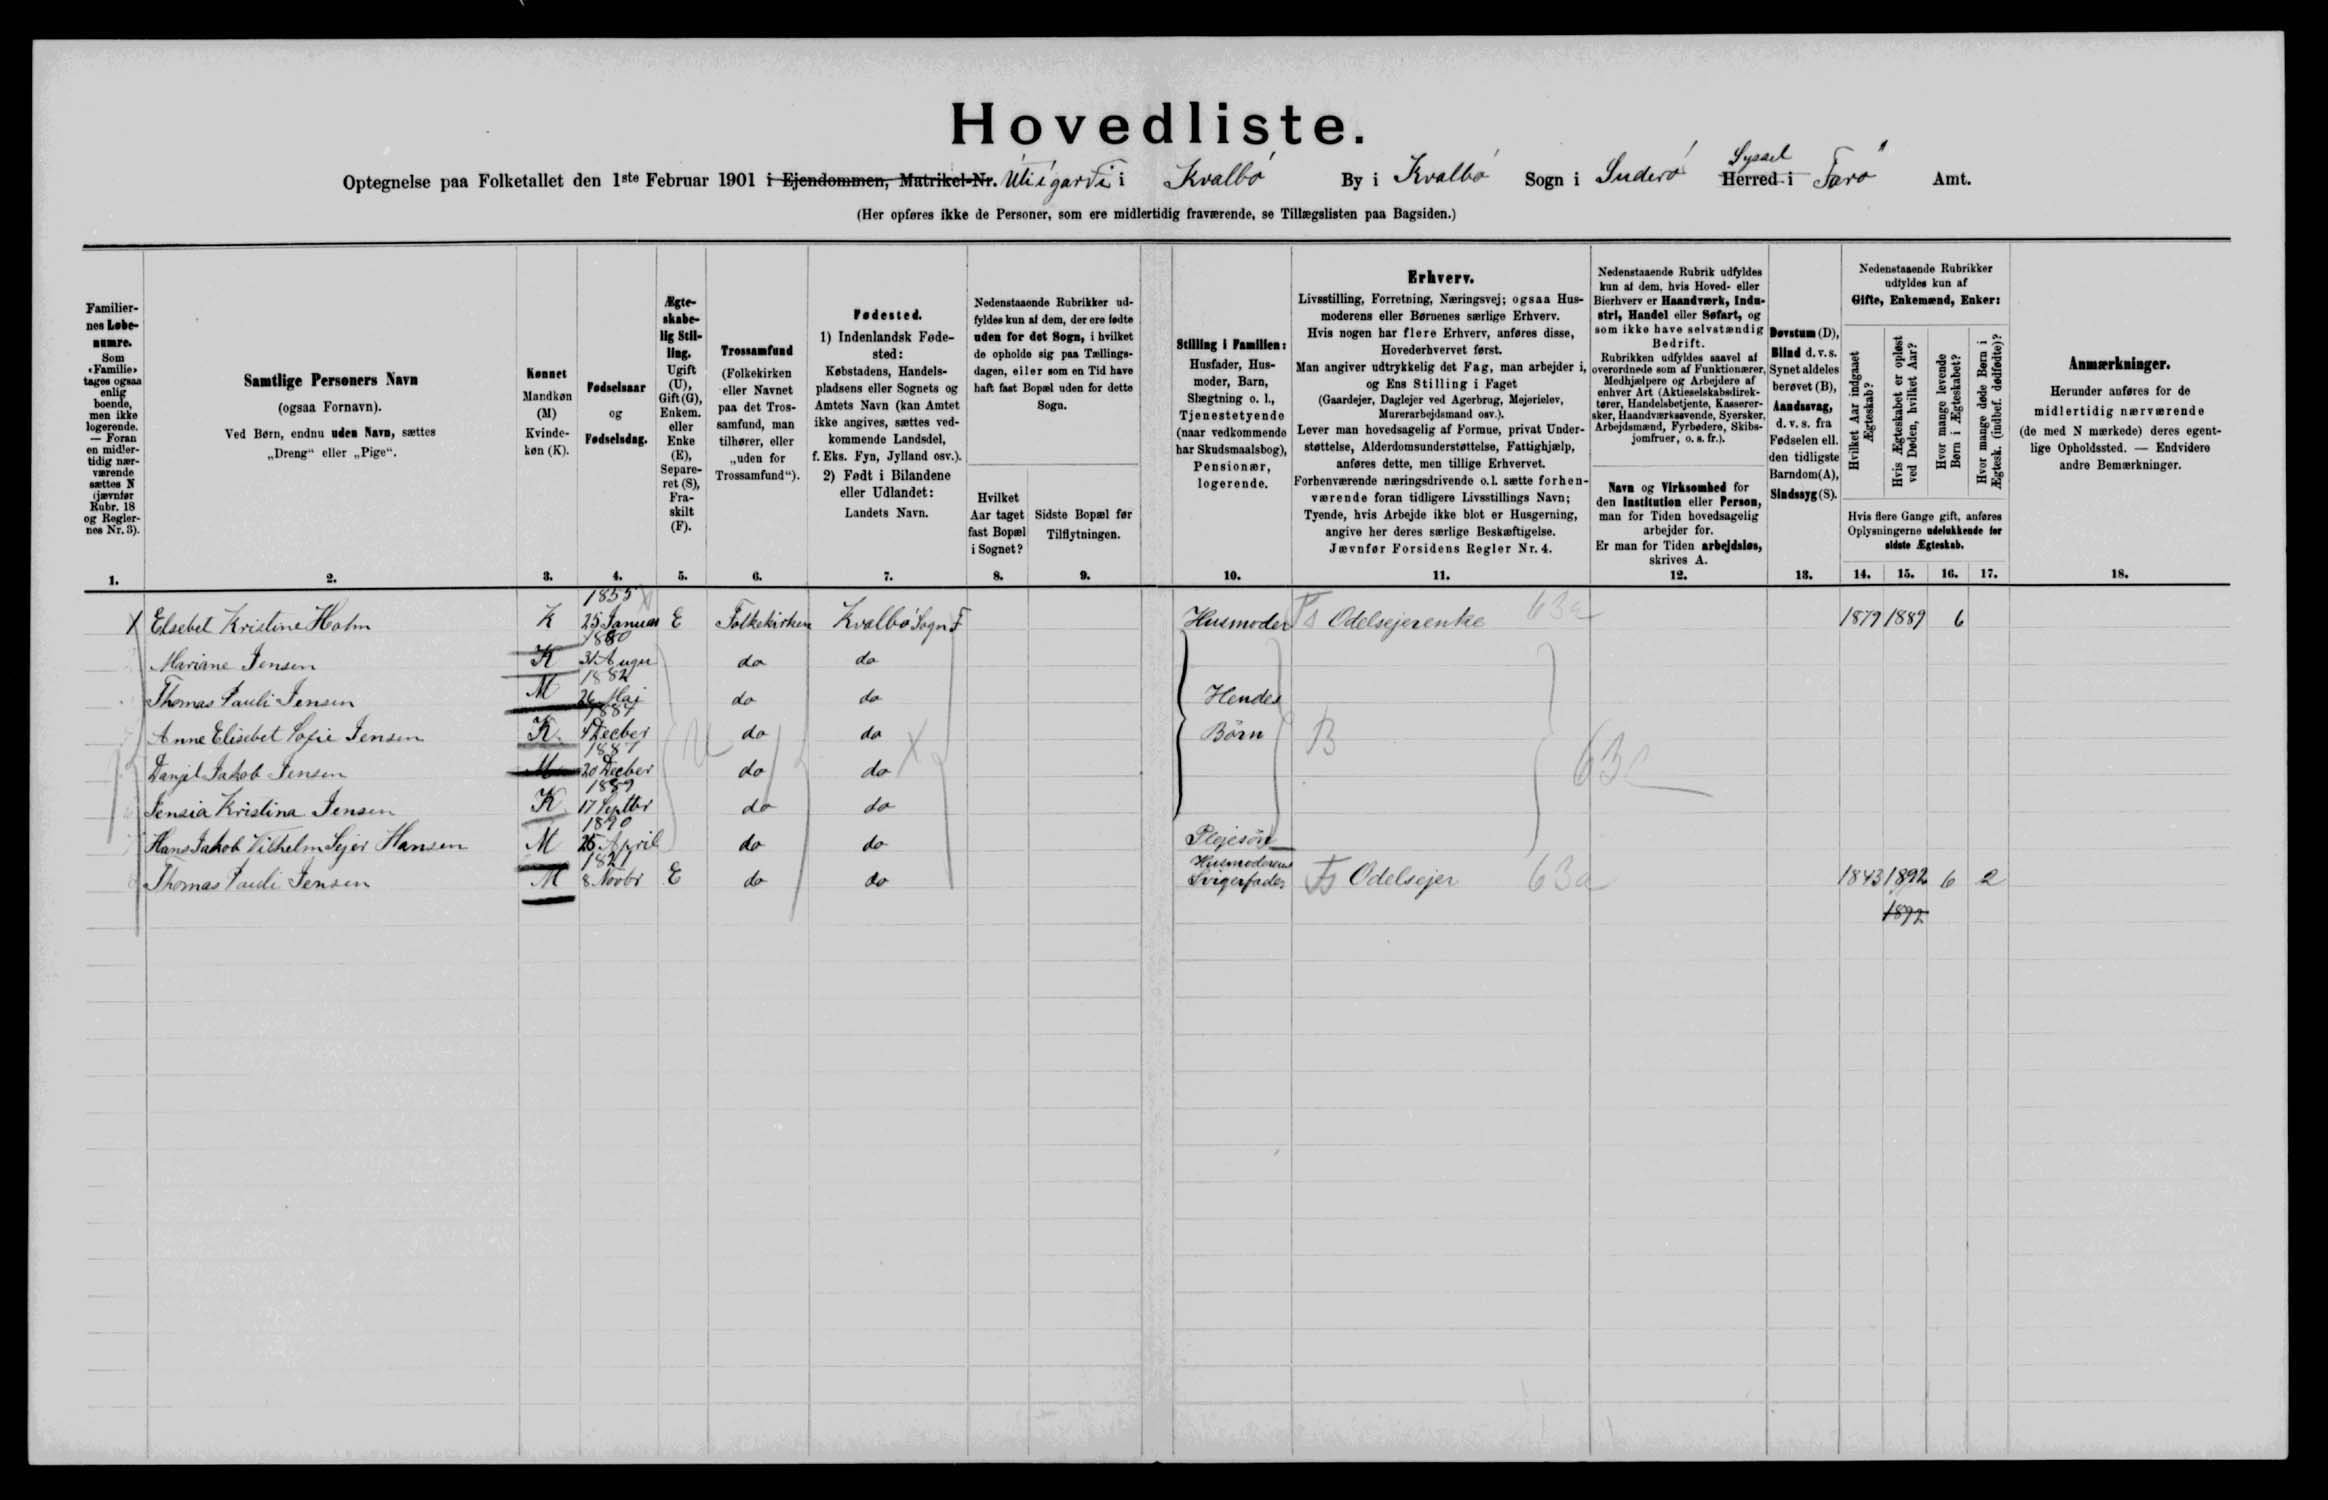 Hovedliste.
Optegnelse paa Folketallet den 1ste Februar 1901 i Ejendommen, Matrikel-Nr. i Kvalbø By i Kvalbø Sogn i Suderø Herred i Syssel Færø Amt.
(Her opføres ikke de Personer, som ere midlertidig fraværende, se Tillægslisten paa Bagsiden.)
Familier-
nes Løbe-
numre.
Som
«Familie»
tages ogsaa
enlig
boende,
men ikke
logerende.
— Foran
en midler-
tidig nær-
værende
sættes N
(jævnfør
Rubr. 18
og Regler-
nes Nr. 3).
Samtlige Personers Navn
(ogsaa Fornavn).
Ved Børn, endnu uden Navn, sættes
„Dreng“ eller „Pige“.
Kønnet
Mandkøn
(M)
Kvinde-
køn (K).
Fødselsaar
og
Fødselsdag.
Ægte-
skabe-
lig Stil-
ling.
Ugift
(U),
Gift (G),
Enkem.
eller
Enke
(E),
Separe-
ret (S),
Fra-
skilt
(F).
Trossamfund
(Folkekirken
eller Navnet
paa det Tros-
samfund, man
tilhører, eller
„uden for
Trossamfund“).
Fødested.
1) Indenlandsk Føde-
sted:
Købstadens, Handels-
pladsens eller Sognets og
Amtets Navn (kan Amtet
ikke angives, sættes ved-
kommende Landsdel,
f. Eks. Fyn, Jylland osv.).
2) Født i Bilandene
eller Udlandet:
Landets Navn.
Nedenstaaende Rubrikker ud-
fyldes kun af dem, der ere fødte
uden for det Sogn, i hvilket
de opholde sig paa Tællings-
dagen, eller som en Tid have
haft fast Bopæl uden for dette
Sogn.
Hvilket
Aar taget
fast Bopæl
i Sognet?
Sidste Bopæl før
Tilflytningen.
Stilling i Familien:
Husfader, Hus-
moder, Barn,
Slægtning o. l.,
Tjenestetyende
(naar vedkommende
har Skudsmaalsbog),
Pensionær,
logerende.
Erhverv.
Livsstilling, Forretning, Næringsvej; ogsaa Hus-
moderens eller Børnenes særlige Erhverv.
Hvis nogen har flere Erhverv, anføres disse,
Hovederhvervet først.
Man angiver udtrykkelig det Fag, man arbejder i,
og Ens Stilling i Faget
(Gaardejer, Daglejer ved Agerbrug, Mejerielev,
Murerarbejdsmand osv.).
Lever man hovedsagelig af Formue, privat Under-
støttelse, Alderdomsunderstøttelse, Fattighjælp,
anføres dette, men tillige Erhvervet.
Forhenværende næringsdrivende o.l. sætte forhen-
værende foran tidligere Livsstillings Navn;
Tyende, hvis Arbejde ikke blot er Husgerning,
angive her deres særlige Beskæftigelse.
Jævnfør Forsidens Regler Nr. 4.
Nedenstaaende Rubrik udfyldes
kun af dem, hvis Hoved- eller
Bierhverv er Haandværk, Indu-
stri, Handel eller Søfart, og
som ikke have selvstændig
Bedrift.
Rubrikken udfyldes saavel af
overordnede som af Funktionærer,
Medhjælpere og Arbejdere af
enhver Art (Aktieselskabsdirek-
tører, Handelsbetjente, Kasserer-
sker, Haandværkssvende, Syersker,
Arbejdsmænd, Fyrbødere, Skibs-
jomfruer, o. s. fr.).
Navn og Virksomhed for
den Institution eller Person,
man for Tiden hovedsagelig
arbejder for.
Er man for Tiden arbejdsløs,
skrives A.
Døvstum (D),
Blind d. v. s.
Synet aldeles
berøvet (B),
Aandssvag,
d. v. s. fra
Fødselen ell.
den tidligste
Barndom (A),
Sindssyg (S).
Nedenstaaende Rubrikker
udfyldes kun af
Gifte, Enkemænd, Enker:
Hvilket Aar indgaaet
Ægteskab?
Hvis Ægteskabet er opløst
ved Døden, hvilket Aar?
Hvor mange levende
Børn i Ægteskabet?
Hvor mange døde Børn i
Ægtesk. (indbef. dødfødte)?
Hvis flere Gange gift, anføres
Oplysningerne udelukkende for
sidste Ægteskab.
Anmærkninger.
Herunder anføres for de
midlertidig nærværende
(de med N mærkede) deres egent-
lige Opholdssted. — Endvidere
andre Bemærkninger.
1. 2. 3. 4. 5. 6. 7. 8. 9. 10. 11. 12. 13. 14. 15. 16. 17. 18.
X Elsebet Kristine Holm K 1855 25 Januar E Folkekirken Kvalbø Sogn F Husmoder Fs Odelsejerenke 63a 1879 1889 6
Mariane Jensen K 1880 31 Augu do do
Thomas Pauli Jensen M 1882 26 Maj do do Hendes
Anne Elisebet Sofie Jensen K 1884 4 Decber U do do X Børn B
Danjel Jakob Jensen M 1887 20 Decber do do 63a
Jensia Kristina Jensen K 1889 17 Septbr do do
Hans Jakob Vilhelm Sejer Hansen M 1890 25 April do do Plejesön
Thomas Pauli Jensen M 1821 8 Novbr E do do Husmoderens Svigerfader Fs Odelsejer 63a 1843 1892 6 2
1892